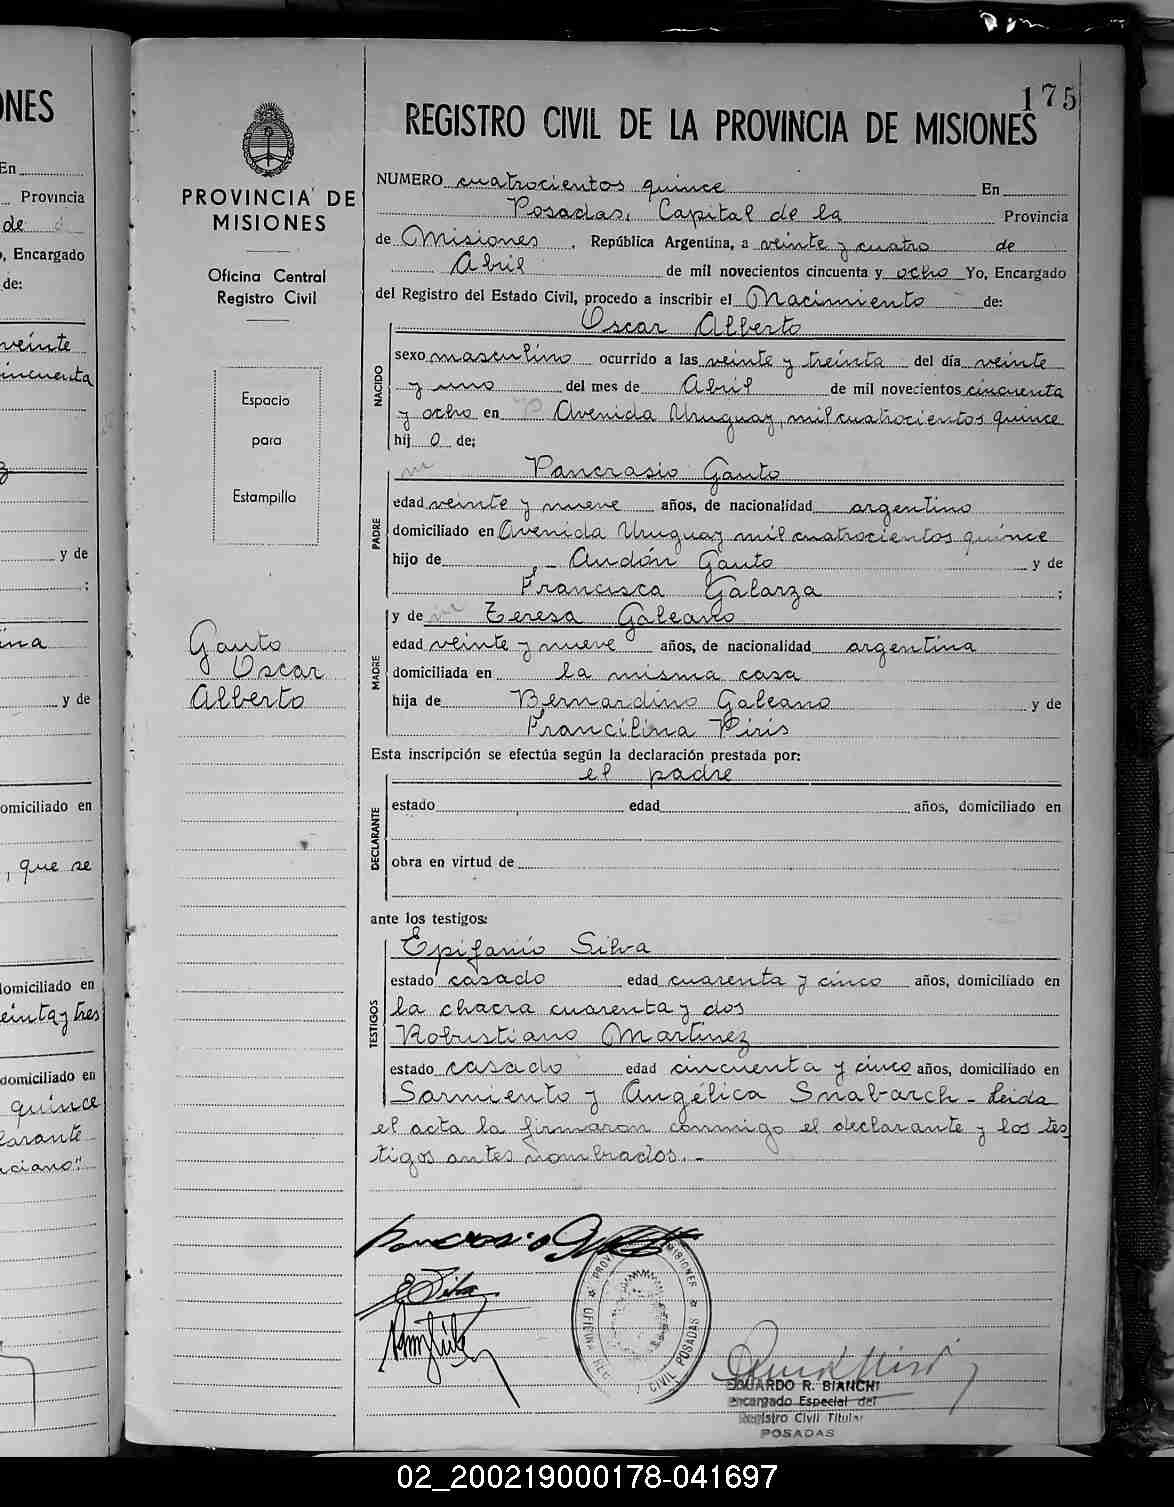 175
REGISTRO CIVIL DE LA PROVINCIA DE MISIONES
PROVINCIA DE
MISIONES
Oficina Central
Registro Civil
Espacio
para
Estampillo
Gauto
Oscar
Alberto
NUMERO cuatrocientos quince En
Posadas, Capital de la Provincia
de Misiones, República Argentina, a veinte y cuatro de
Abril de mil novecientos cincuenta y ocho Yo, Encargado
del Registro del Estado Civil, procedo a inscribir el Nacimiento de:
Oscar Alberto
NACIDO
sexo masculino ocurrido a las veinte y treinta del día veinte
y uno del mes de Abril de mil novecientos cincuenta
y ocho en Avenida Uruguay, mil cuatrocientos quince
hij o de:
Pancrasio Gauto
PADRE
edad veinte y nueve años, de nacionalidad argentino
domiciliado en Avenida Uruguay mil cuatrocientos quince
hijo de Andón Gauto y de
Francisca Galarza ;
y de Teresa Galeano
MADRE
edad veinte y nueve años, de nacionalidad argentina
domiciliada en la misma casa
hija de Bernardino Galeano y de
Francilina Piris
Esta inscripción se efectúa según la declaración prestada por:
el padre
DECLARANTE
estado edad años, domiciliado en
obra en virtud de
ante los testigos:
Epifanio Silva
TESTIGOS
estado casado edad cuarenta y cinco años, domiciliado en
la chacra cuarenta y dos
Robustiano Martinez
estado casado edad cincuenta y cinco años, domiciliado en
Sarmiento y Angélica Snabarch - Leida
el acta la firmaron conmigo el declarante y los tes
tigos antes nombrados. -
Pancrasio Gauto
E Silva
POSADAS
CIVIL
EDUARDO R. BIANCHI
Encargado Especial del
Registro Civil Titular
POSADAS
ONES
En
Provincia
de
, Encargado
de:
veinte
incuenta
y de
;
ina
y de
omiciliado en
, que se
domiciliado en
einta y tres
domiciliado en
quince
larante
uciano"
02_200219000178-041697